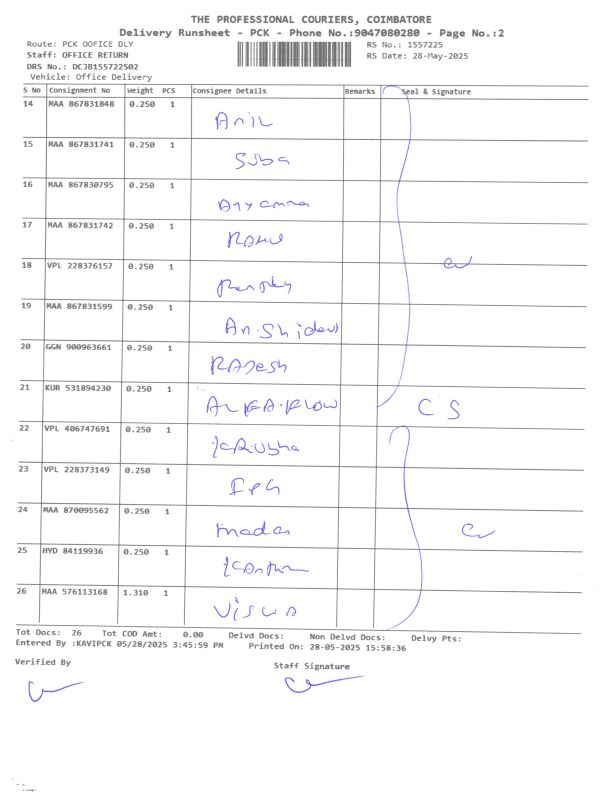 THE PROFESSIONAL COURIERS, COIMBATORE
Delivery Runsheet - PCK - Phone No.:9047080280 - Page No.:2
Route: PCK OOFICE DLY RS No.: 1557225
Staff: OFFICE RETURN RS Date: 28-May-2025
DRS No.: DCJB155722502
Vehicle: Office Delivery
S No Consignment No Weight PCS Consignee Details Remarks Seal & Signature
14 MAA 867831848 0.250 1 Anil
15 MAA 867831741 0.250 1 Suba
16 MAA 867830795 0.250 1
17 MAA 867831742 0.250 1
18 VPL 228376157 0.250 1
19 MAA 867831599 0.250 1
20 GGN 900963661 0.250 1 RAJesh
21 KUR 531894230 0.250 1 ALFA.FLOW CS
22 VPL 406747691 0.250 1
23 VPL 228373149 0.250 1
24 MAA 870095562 0.250 1 madan
25 HYD 84119936 0.250 1
26 MAA 576113168 1.310 1 Viswa
Tot Docs: 26 Tot COD Amt: 0.00 Delvd Docs: Non Delvd Docs: Delvy Pts:
Entered By :KAVIPCK 05/28/2025 3:45:59 PM Printed On: 28-05-2025 15:58:36
Verified By Staff Signature